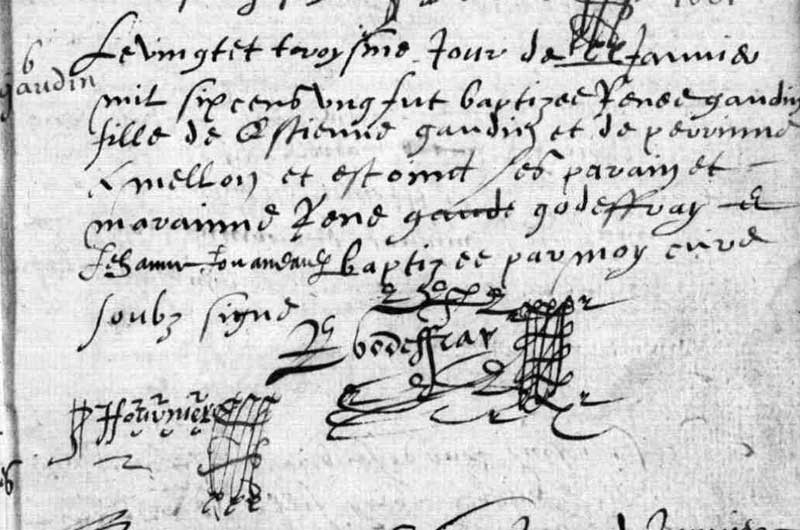 b
gaudin
Le vingt et troysme Jour de Janvier
mil six cens ung fut baptizee Renee gaudin
fille de Estienne gaudin et de perrinne
mellon et estoint ses parain et
marainne Rene godeffray et
Jehanne baptizee par moy cure
soubz signe
R godeffray